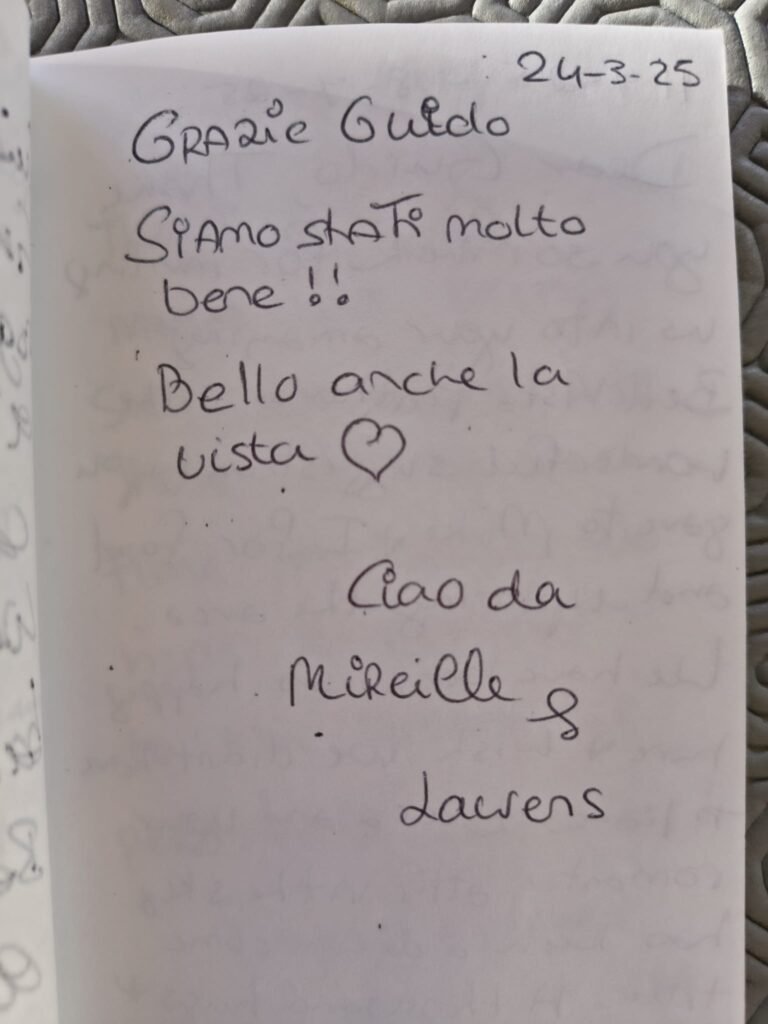 24-3-25
GRAZie Guido
SiAmo stATi molto
bene !!
Bello anche la
vista ♡
Ciao da
Mireille &
Laurens